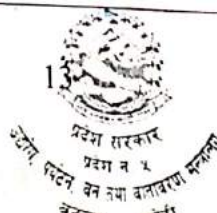 13
प्रदेश सरकार
प्रदेश नं ५
उद्योग, पर्यटन, वन तथा वातावरण मन्त्रालय